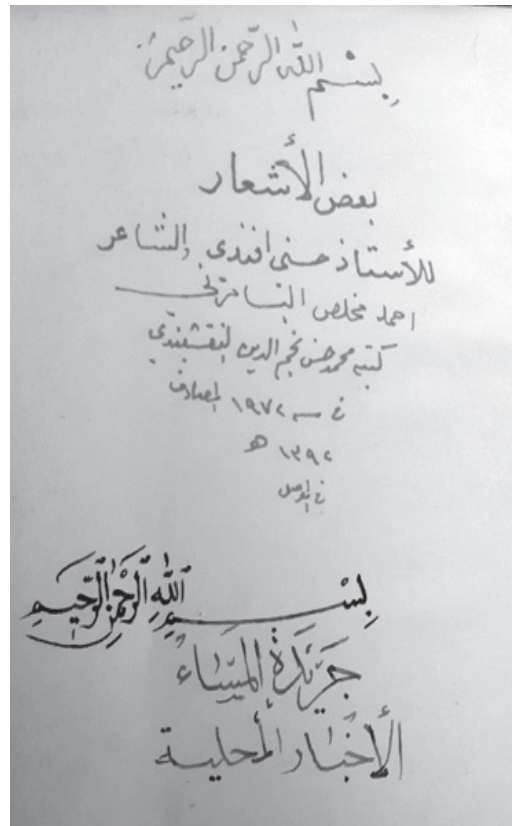 بسم الله الرحمن الرحيم
بعض الأشعار
للأستاذ حسني افندي والشاعر
احمد مخلص
كتبه محمد حسن نجم الدين النقشبندي
في سنه ١٩٧٢ المصادف
١٣٩٢ هـ
في الموصل
بِسْمِ اللهِ الرَّحْمٰنِ الرَّحِيمِ
جَرِيْدَةُ المَسَاءُ
الأَخْبَار المُحلية